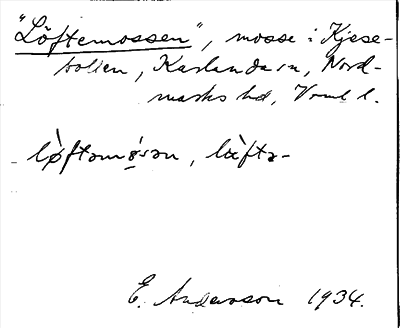 "Löftemossen", mosse i Kjese-
bollen, Karlanda sn, Nord-
marks hd, Vrml l.
lø̀ftamósan, lùfta-
E. Andersson 1934.